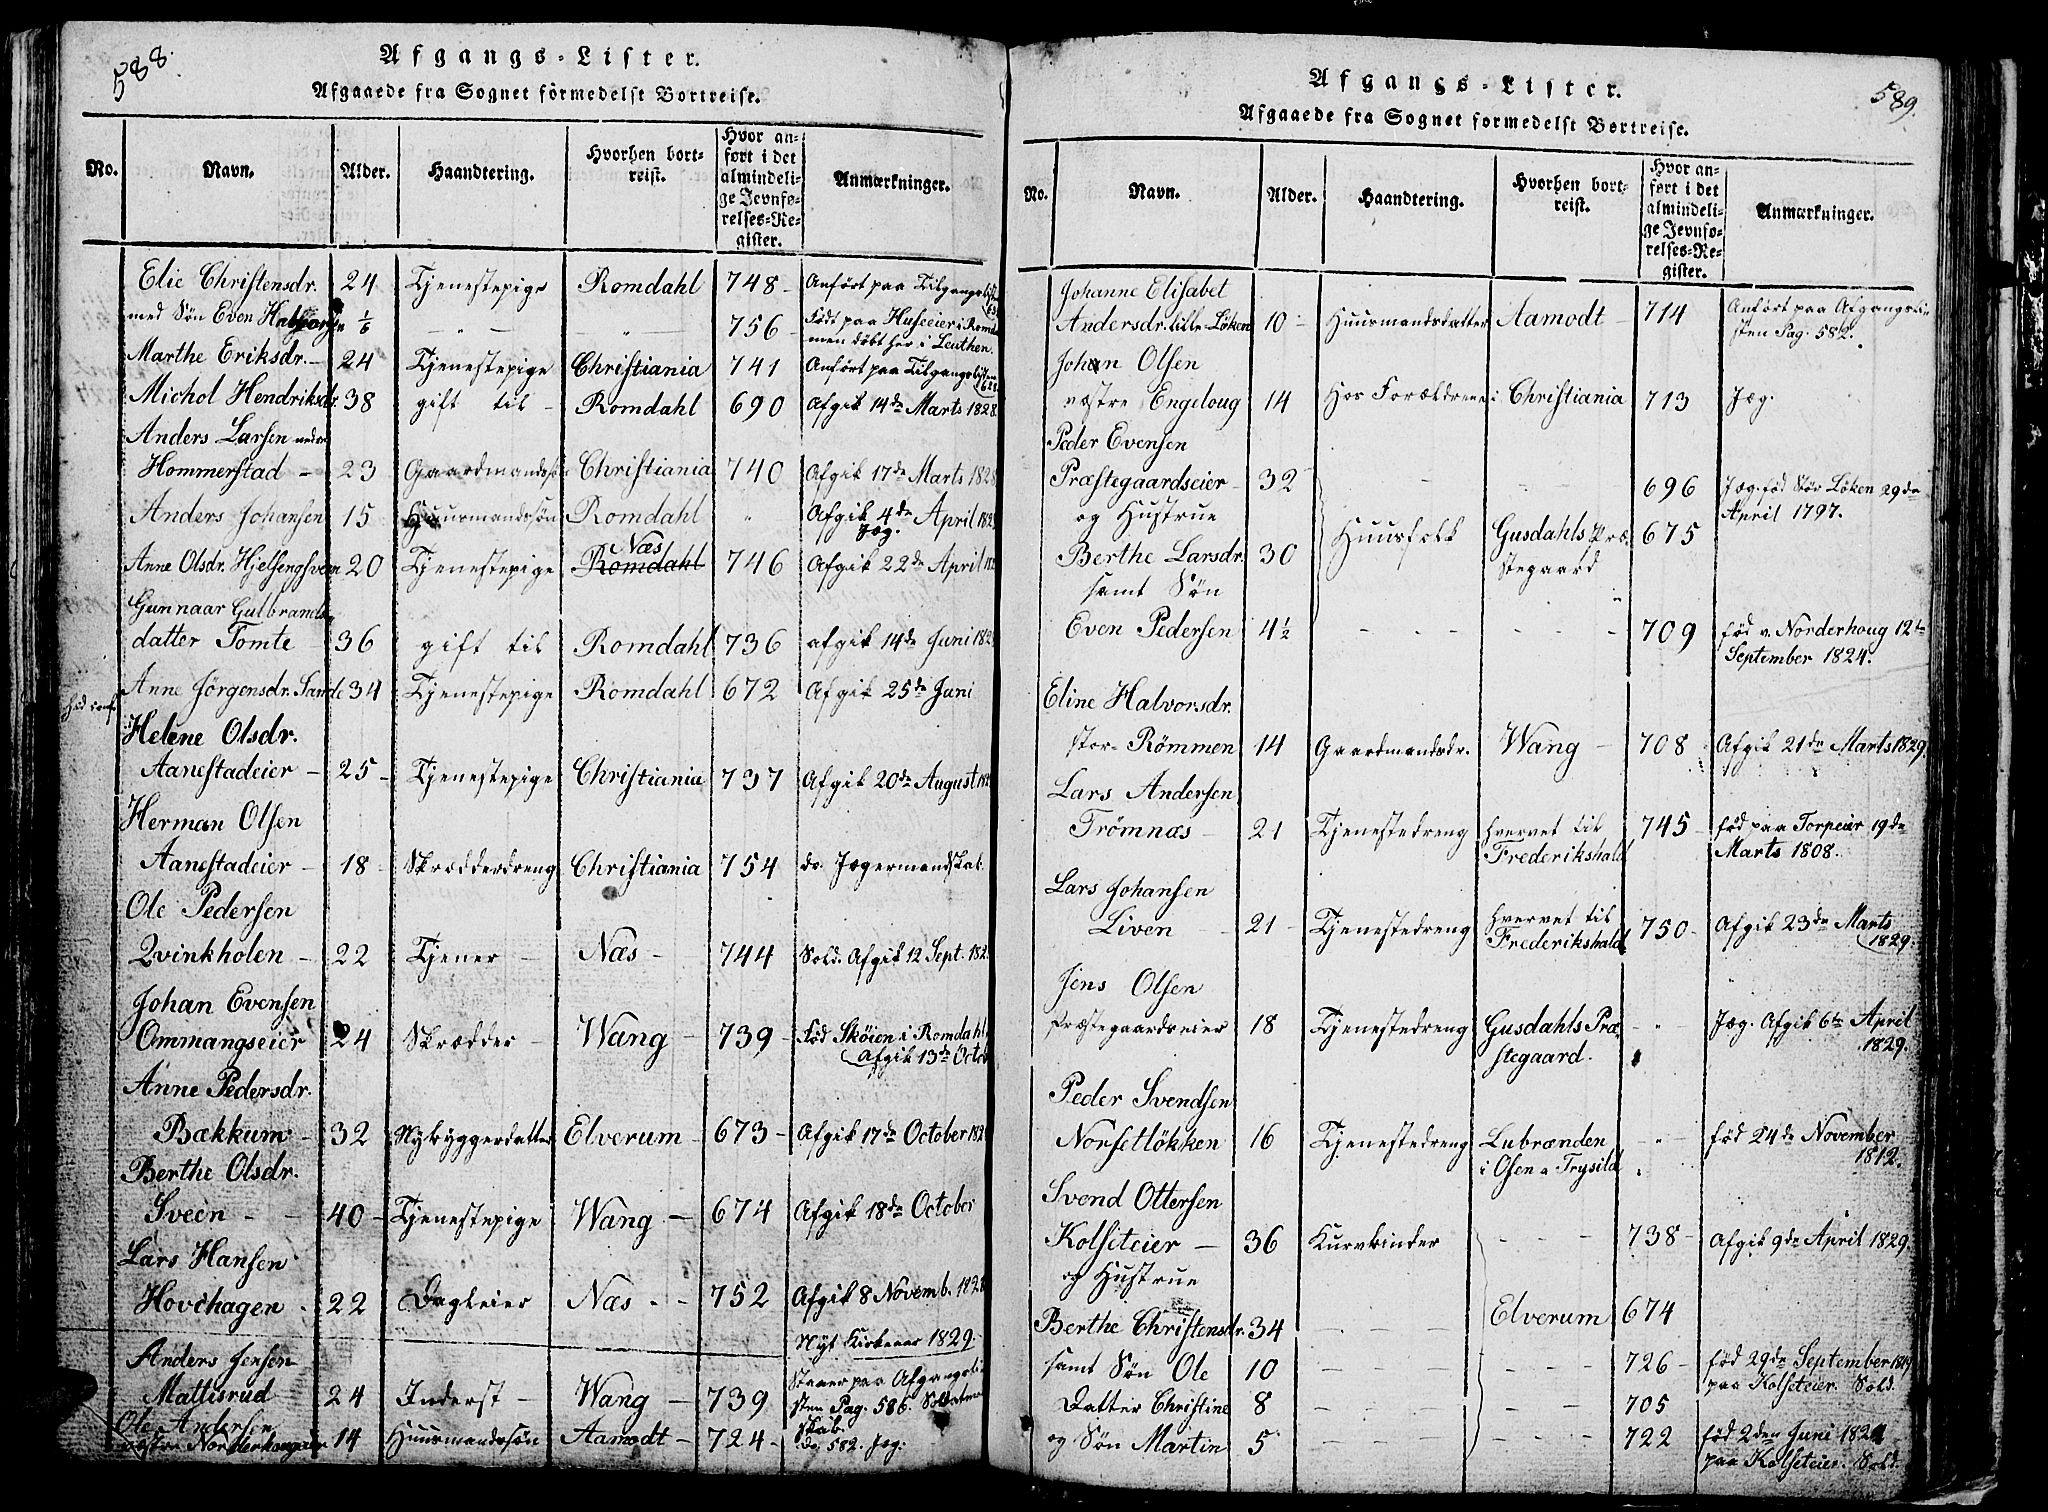 588.
Afgangs-Lister.
Afgaaede fra Sognet formedelst Bortreise.
No. Navn. Alder. Haandtering. Hvorhen bortreist. Hvor anført i det almindelige Jevnførelses-Register. Anmærkninger.
Elie Christensdr. 24 Tjenestepige Romdahl 748 - Anført paa Tilgangslist
med Søn Even 1/6 — " — " 756 - Født paa Huseeier i Romda
men døbt her i Leuthen.
Marthe Eriksdr. - 24 Tjenestepige Christiania 741 Anført paa Tilgangslisten
Michol Hendriksdr. 38 gift til - Romdahl 690 Afgik 14de Marts 1828.
Anders Larsen
Hommerstad - 23 Gaardmands Christiania 740 Afgik 17de Marts 1828
Anders Johansen 15 Huusmandssøn Romdahl " Afgik 4de April 182
Jæg.
Næs
Anne Olsdr. Hjelsengsveen 20 Tjenestepige Romdahl 746 Afgik 22de April
Gunnaar Gulbrands
datter Tomte - 36 gift til Romdahl 736 afgik 14de Juni 182
Anne Jörgensdr. Sande 34 Tjenestepige Romdahl 672 Afgik 25de Juni
Helene Olsdr.
Aanestadeier - 25 - Tjenestepige Christiania 737 Afgik 20de August 182
Herman Olsen
Aanestadeier - 18 - Skrædderdreng Christiania 754 do. Jegermandskab.
Ole Pedersen
Qvinkholen - 22 Tjener - Næs - 744 Sold. Afgik 12 Sept. 182
Johan Evensen
Ommangseier 24 Skrædder - Wang - 739 - Föd Sköien i Romdahl
Afgik 13de Octob
Anne Pedersdr.
Bækkum - 32 Nybyggerdatter Elverum - 673 - Afgik 17de October 182
Berthe Olsdr.
Sveen - - 40 - Tjenestepige Wang - 674 Afgik 18de October
Lars Hansen
Hovehagen - 22 Dagleier Næs - - 752 Afgik 8 Novemb. 1828
Nyt Kirkeaar 1829.
Anders Jensen
Mattisrud - 24 Inderst - Wang - 739 Staaer paa Afgangsli
sten Pag. 586. Soldatmand
skab.
Ole Andersen
vestre Norderhougeier 14 Huusmandssøn Aamodt - 724 - do. 582. Jæg.
589.
Afgangs-Lister.
Afgaaede fra Sognet formedelst Bortreise.
No. Navn. Alder. Haandtering. Hvorhen bortreist. Hvor anført i det almindelige Jevnførelses-Register. Anmærkninger.
Johanne Elisabet
Andersdr. lille Löken 10 - Huusmandsdatter Aamodt - 714 Anført paa Afgangsli
sten Pag. 582.
Johan Olsen
vestre Engeloug 14 Hos Forældrene i Christiania 713 Jæg.
Peder Evensen
Præstegaardseier - 32 - - - 696 Jæg. föd Stör Löken 29de
April 1797.
og Hustrue
Berthe Larsdr. 30 Huusfolk Gusdahls Præ- 675
stegaard
samt Søn
Even Pedersen 4½ - - - - 709 föd v. Norderhoug 12te
September 1824.
Eline Halvorsdr.
stor- Römmen 14 Gaardmandsdr. Wang - 708 Afgik 21de Marts 1829.
Lars Andersen
Trömnæs - 21 Tjenestedreng hvervet til 745 - föd paa Torpeier 19de
Frederikshald Marts 1808.
Lars Johansen
Liven - 21 - Tjenestedreng hvervet til 750 - Afgik 23de Marts
Frederikshald 1829.
Jens Olsen
Præstegaardseier 18 Tjenestedreng Gusdahls Præ- " Jæg. Afgik 6te April
stegaard. 1829.
Peder Svendsen
Norsetlökken 16 Tjenestedreng Lubrænden - " - föd 24de November
i Osen a Trysild 1812.
Svend Ottersen
Kolseteier - 36 Kurvbinder - - - 738 - Afgik 9de April 1829.
og Hustrue
Berthe Christensdr. 34 - - - Elverum 674
samt Søn Ole 10 - - - 726 - föd 29de September 1819
paa Kolseteier. Sold.
Datter Christine 8 - - - 705
og Søn Martin 5 - - - 722 föd 2den Juni 1824
paa Kolseteier. Sold.